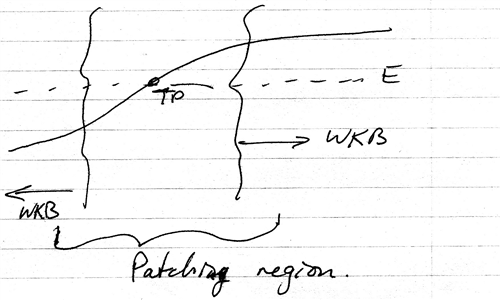 E
TP
WKB
WKB
Patching region.